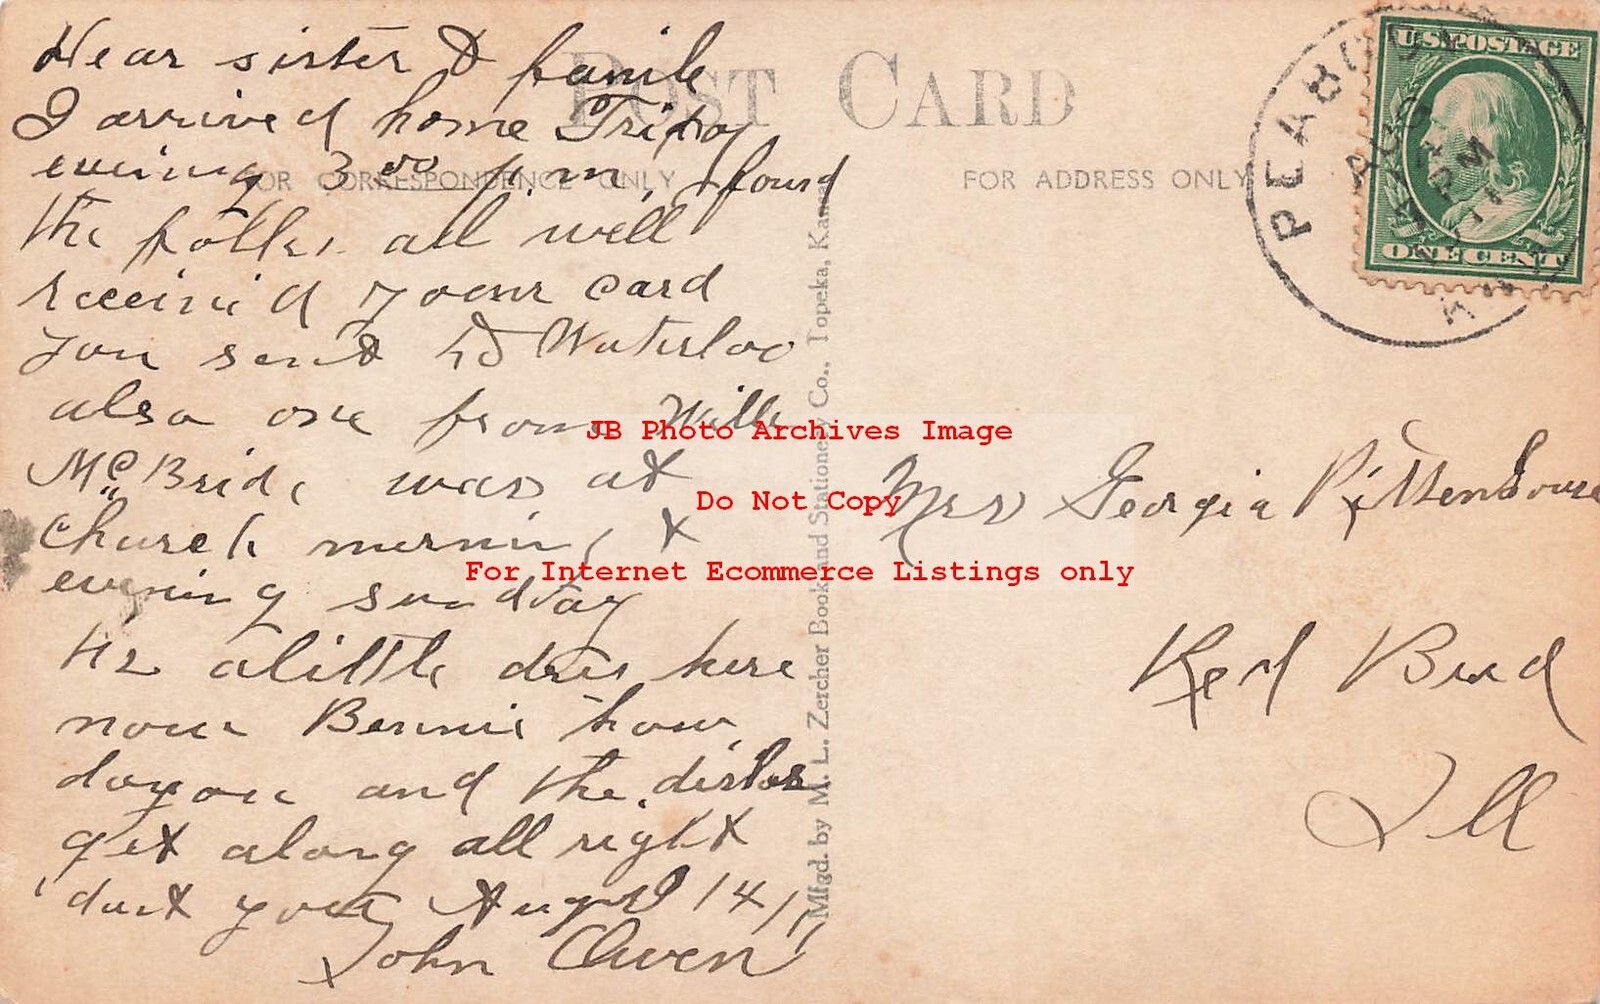 Dear sister & famile
I arrived home Friday
evening 3 00 p. m. found
the folks all well
received your card
you sent to Waterloo
also one from Wille
McBride was at
church morning &
evening sunday
tis a little dry here
now Bennie how
do you and the dishes
get along all right
dont you August 14/11
John Owen
POST CARD
FOR CORRESPONDENCE ONLY
FOR ADDRESS ONLY
Mfgd. by M. L. Zercher Book and Stationery Co., Topeka, Kansas
PEABODY
AUG
PM
U.S. POSTAGE
ONE CENT
Mrs Georgia Rittenhouse
Red Bud
Ill
JB Photo Archives Image
Do Not Copy
For Internet Ecommerce Listings only